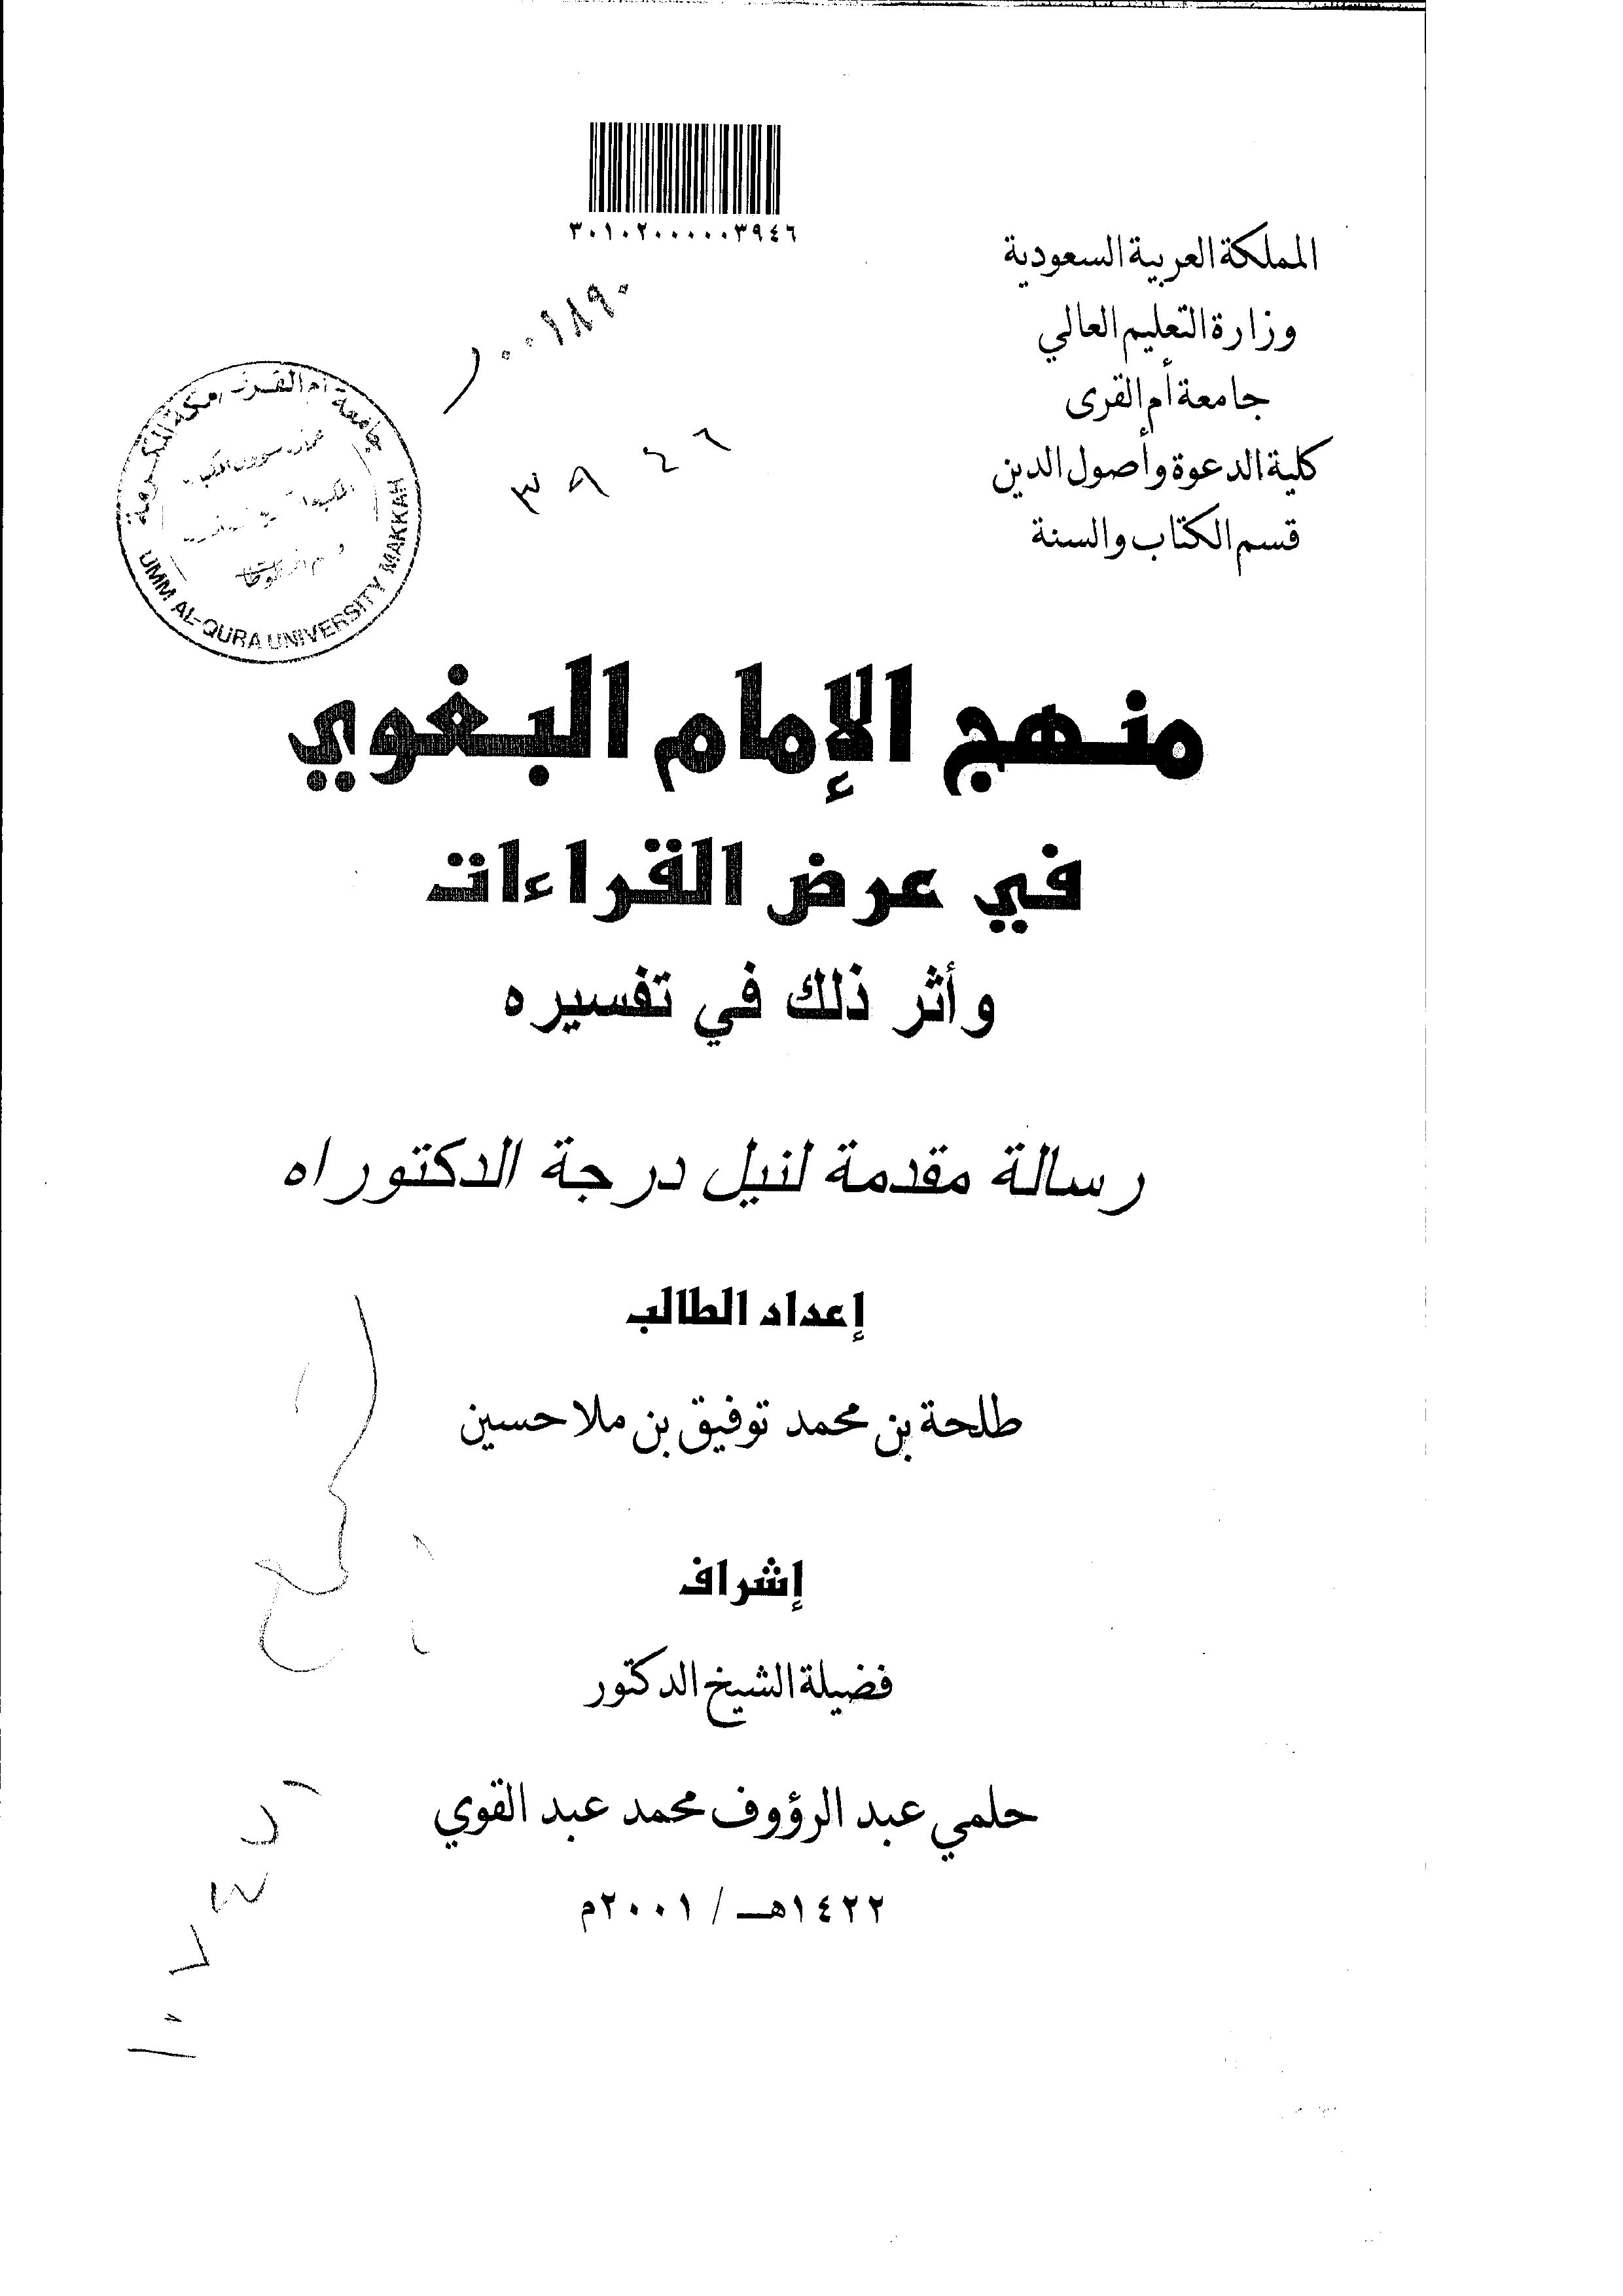 ٣٠١٠٢٠٠٠٠٠٣٩٤٦
المملكة العربية السعودية
وزارة التعليم العالي
جامعة أم القرى
كلية الدعوة وأصول الدين
قسم الكتاب والسنة
٠٠١٨٩٠
٣٩٤٦
جامعة أم القرى مكة المكرمة
UMM AL-QURA UNIVERSITY MAKKAH
منهج الإمام البغوي
في عرض القراءات
وأثر ذلك في تفسيره
رسالة مقدمة لنيل درجة الدكتوراه
إعداد الطالب
طلحة بن محمد توفيق بن ملا حسين
إشراف
فضيلة الشيخ الدكتور
حلمي عبد الرؤوف محمد عبد القوي
١٤٢٢هـ / ٢٠٠١م